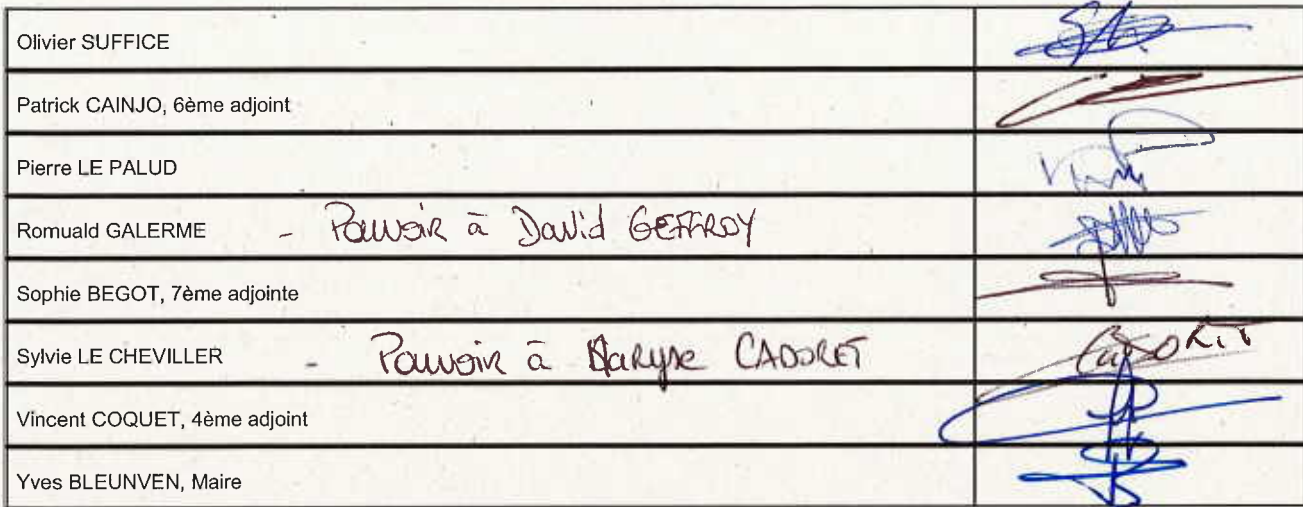 Olivier SUFFICE
Patrick CAINJO, 6ème adjoint
Pierre LE PALUD
Romuald GALERME - Pouvoir à David GEFFROY
Sophie BEGOT, 7ème adjointe
Sylvie LE CHEVILLER - Pouvoir à Maryse CADORET
Vincent COQUET, 4ème adjoint
Yves BLEUNVEN, Maire